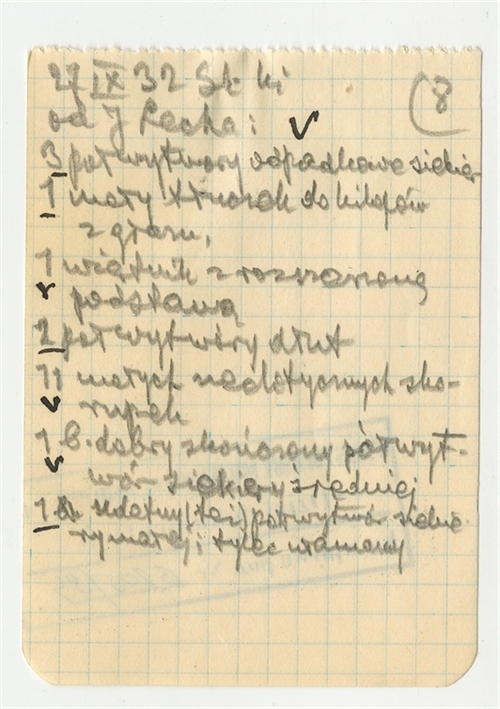 27 IX 32 St. ki (8
od J Lecha: V
3 półwytwory odpadkowe siekier
1 mały tłuczek do kilofów
z głazu,
1 wiątnik z rozszerzoną
podstawą
2 półwytwory dłut
11 małych neolitycznych sko-
rupek
1 b. dobry skończony półwyt-
wór siekiery średniej
1 szletny (też) półwytwór siekie
ry małej; tylec włamany